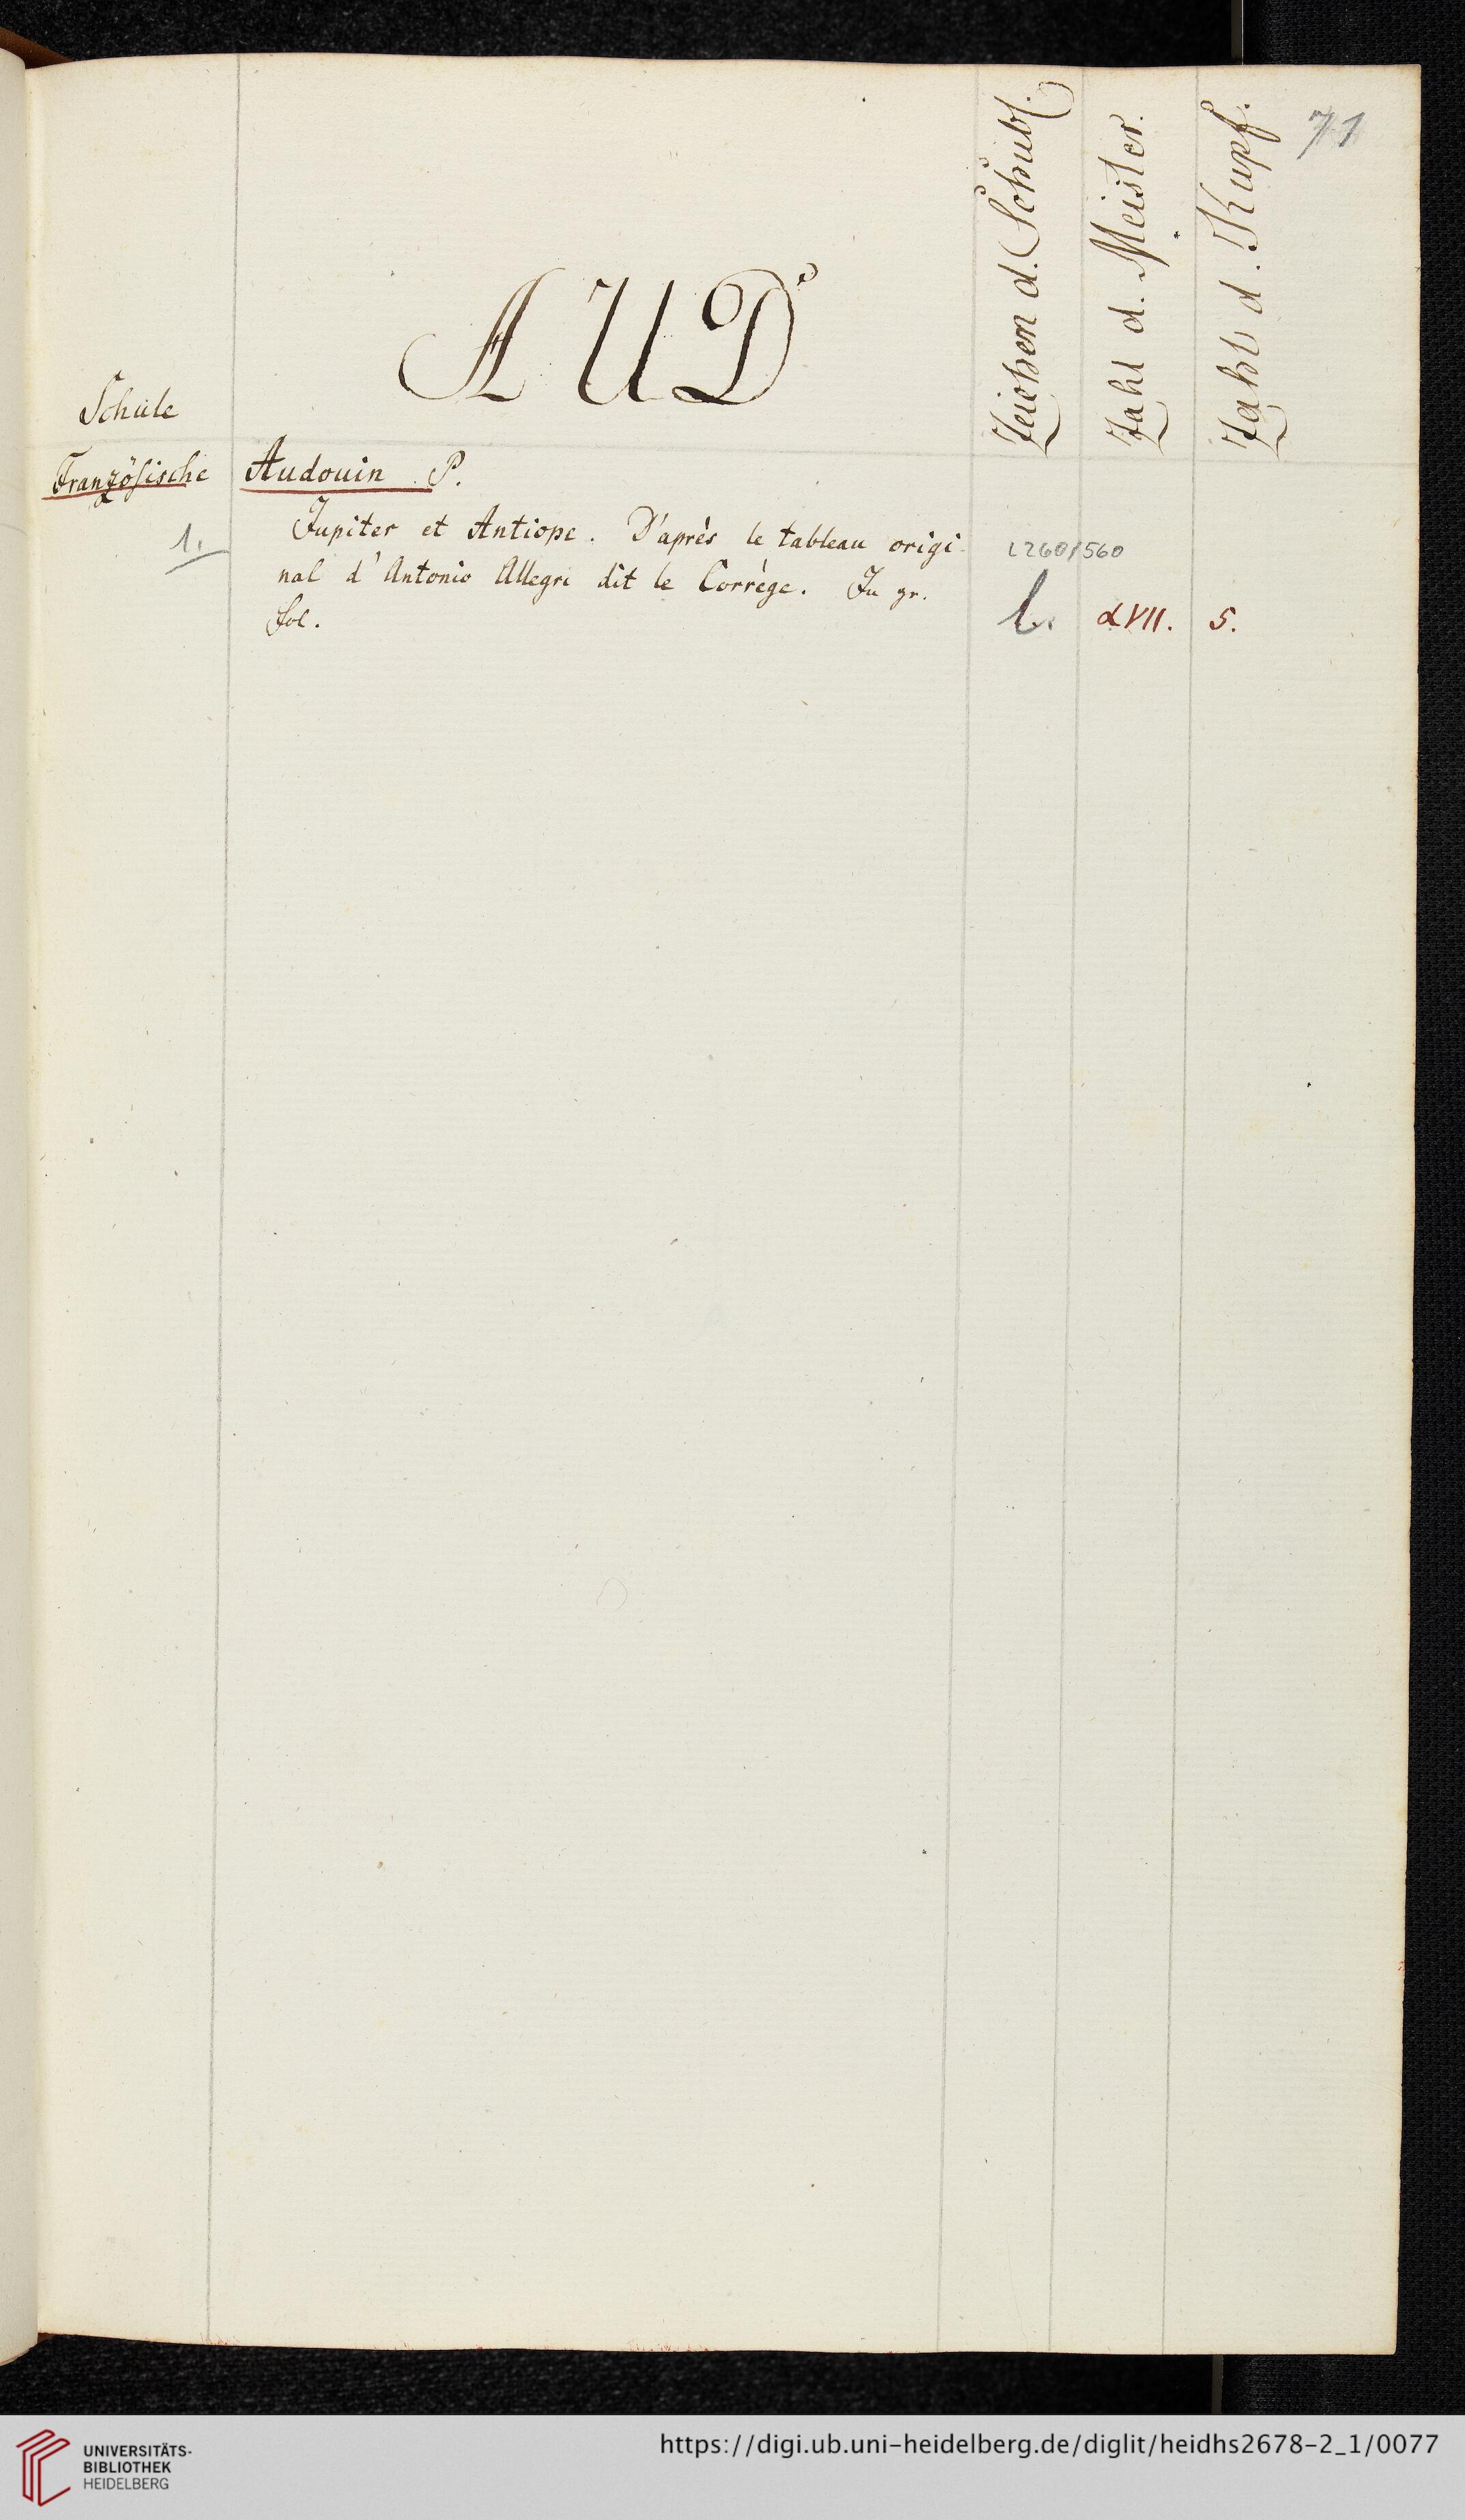 71
Zeichen d. Schubl.
Zahl d. Meister.
Zahl d. Kupf.
AUD
Schule
Französische
Audouin P.
1.
Jupiter et Antiope. D'après le tableau origi-
nal d'Antonio Allegri dit le Corrège. In gr.
fol.
560
l. αVII. 5.
UNIVERSITÄTS-
BIBLIOTHEK
HEIDELBERG
https://digi.ub.uni-heidelberg.de/diglit/heidhs2678-2_1/0077